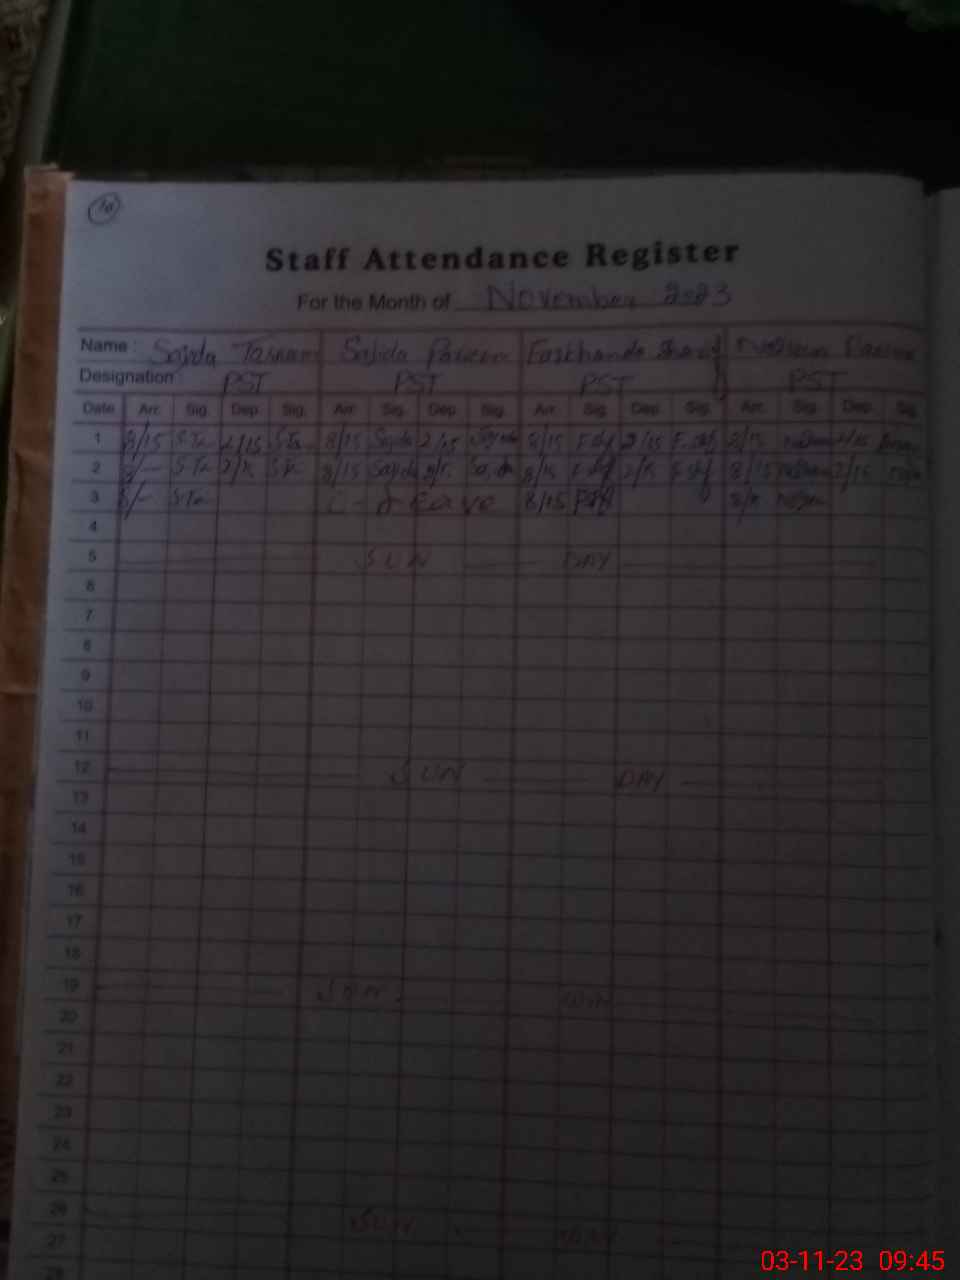 10
Staff Attendance Register
For the Month of November 2023
Name : Sajida Tasnam Sajida Parveen Farkhanda Sharif
Designation : PST PST PST PST
Date Arr. Sig. Dep. Sig. Arr. Sig. Dep. Sig. Arr. Sig. Dep. Sig. Arr. Sig. Dep. Sig.
1 8/15 S.Ta 2/15 S.Ta 8/15 Sajida 2/15 Sajida 8/15 2/15 8/15 2/15
2 8/— S.Ta 2/15 8/15 Sajida 2/15 Sajida 8/15 2/15 8/15 2/15
3 8/— S.Ta Leave 8/15
4
5 SUN DAY
6
7
8
9
10
11
12 SUN DAY
13
14
15
16
17
18
19 SUN
20
21
22
23
24
25
26 SUN DAY
27
28
03-11-23 09:45